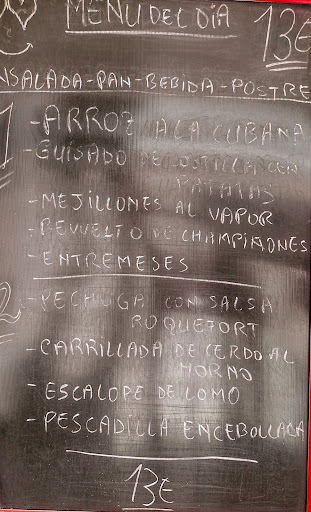 MENU DEL DÍA 13€
ENSALADA-PAN-BEBIDA-POSTRE
1 -ARROZ A LA CUBANA
-GUISADO DE COSTILLA CON
PATATAS
-MEJILLONES AL VAPOR
-REVUELTO DE CHAMPIÑONES
-ENTREMESES
2 -PECHUGA CON SALSA
ROQUEFORT
-CARRILLADA DE CERDO AL
HORNO
-ESCALOPE DE LOMO
-PESCADILLA ENCEBOLLADA
13€